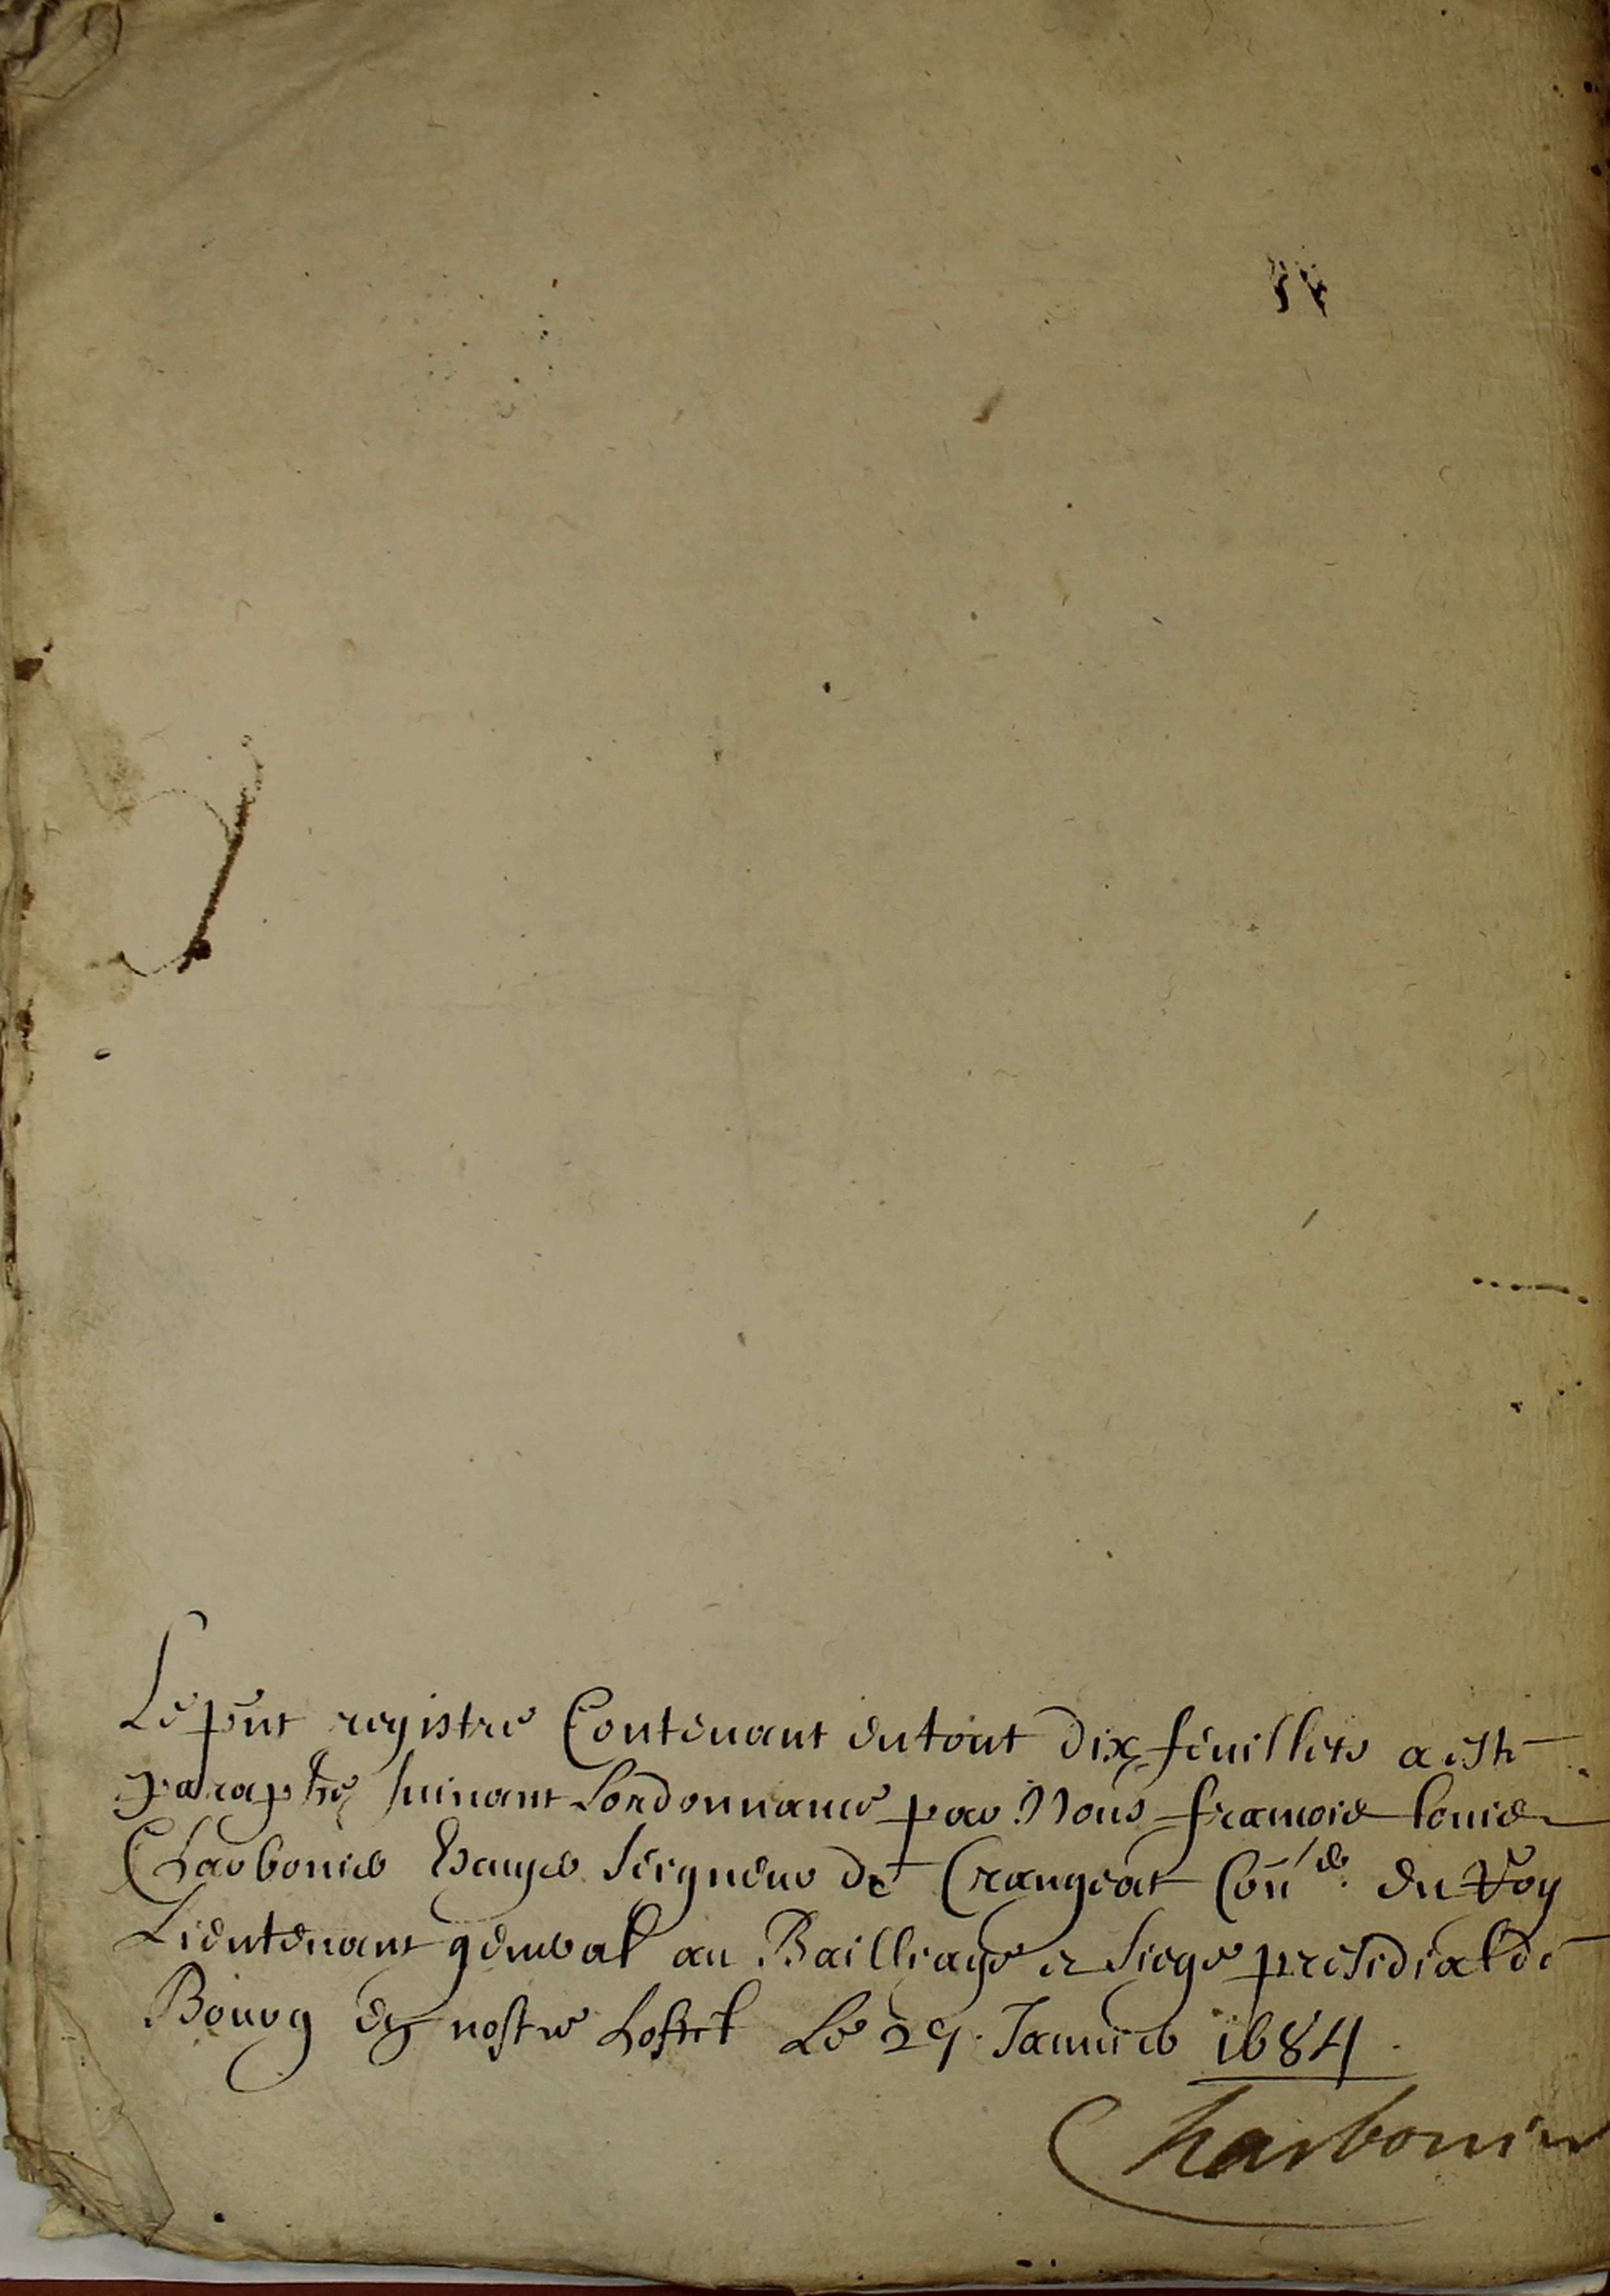 Le pnt registre Contenant en tout dix feuillets a esté
paraphé suivant Lordonnance par Nous francois louis
Charbonier Seigneur de Crangeat Con.er du Roy
Lieutenant general au Bailliage et siege presidial de
Bourg en nostre hostel Le 29 Januier 1684
Charbonier